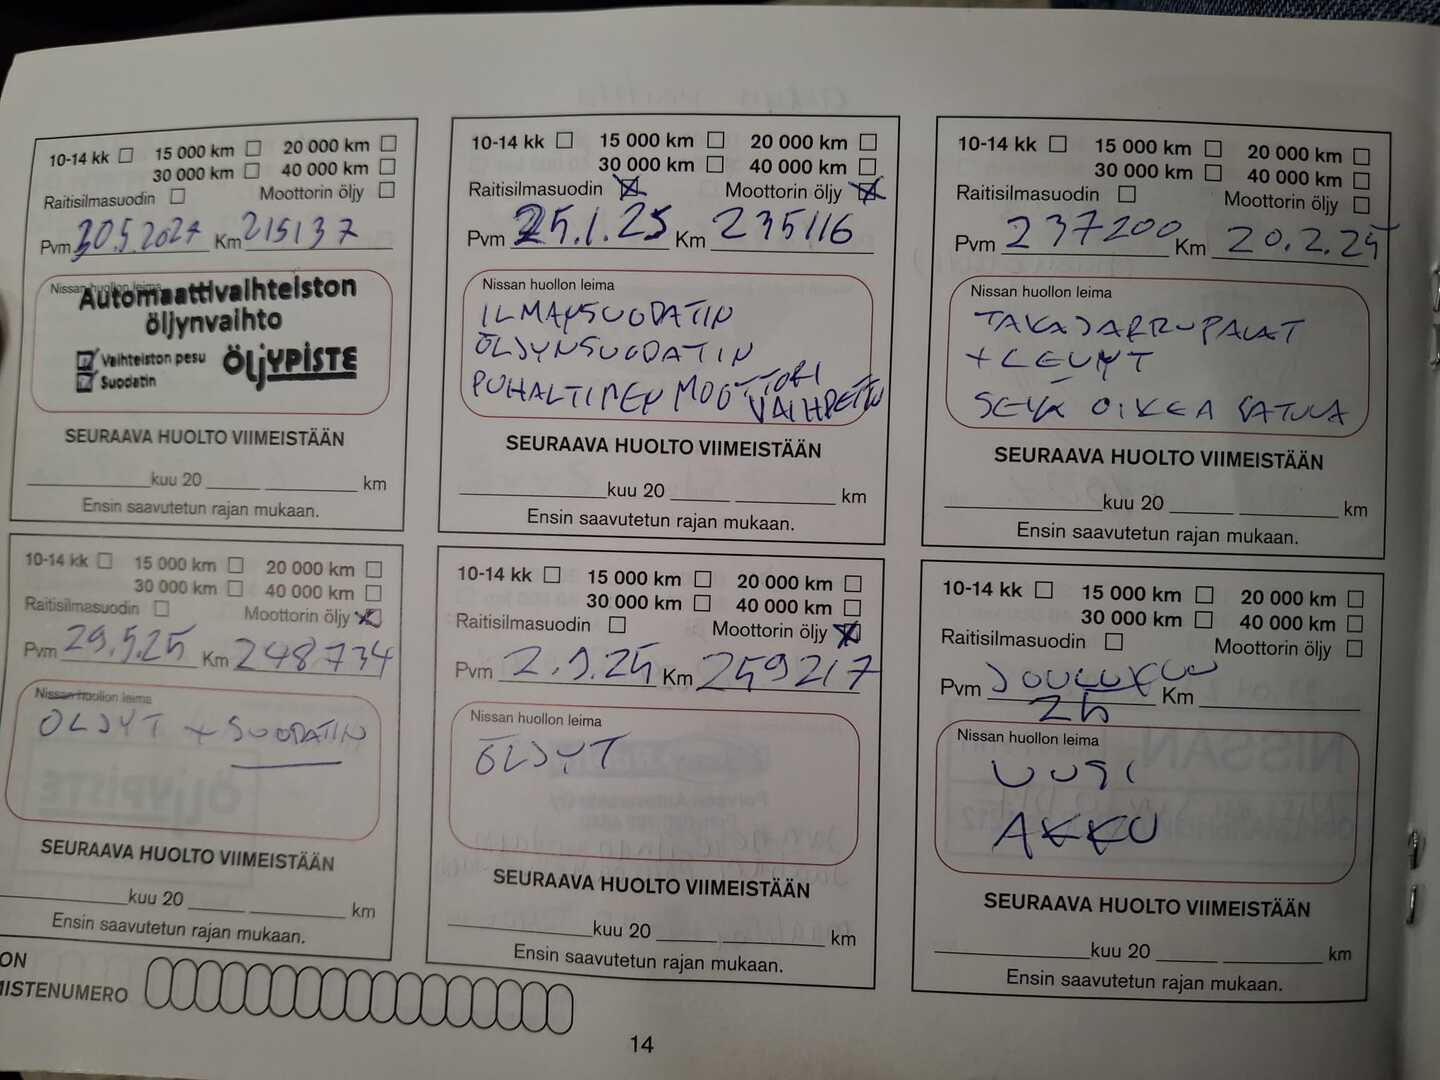 10-14 kk 15 000 km 20 000 km
30 000 km 40 000 km
Raitisilmasuodin Moottorin öljy
Pvm 30.5.2024 Km 215137
Nissan huollon leima
Automaattivaihteiston
öljynvaihto
Vaihteiston pesu
Suodatin
ÖljYPISTE
SEURAAVA HUOLTO VIIMEISTÄÄN
kuu 20 km
Ensin saavutetun rajan mukaan.
10-14 kk 15 000 km 20 000 km
30 000 km 40 000 km
Raitisilmasuodin Moottorin öljy
Pvm 25.1.25 Km 235116
Nissan huollon leima
ILMANSUODATIN
ÖLJYNSUODATIN
PUHALTIMEN MOOTTORI
VAIHDETTU
SEURAAVA HUOLTO VIIMEISTÄÄN
kuu 20 km
Ensin saavutetun rajan mukaan.
10-14 kk 15 000 km 20 000 km
30 000 km 40 000 km
Raitisilmasuodin Moottorin öljy
Pvm 237200 Km 20.2.25
Nissan huollon leima
TAKAJARRUPALAT
+ LEVYT
SEKÄ OIKEA SATULA
SEURAAVA HUOLTO VIIMEISTÄÄN
kuu 20 km
Ensin saavutetun rajan mukaan.
10-14 kk 15 000 km 20 000 km
30 000 km 40 000 km
Raitisilmasuodin Moottorin öljy
Pvm 29.5.25 Km 248734
Nissan huollon leima
ÖLJYT + SUODATIN
SEURAAVA HUOLTO VIIMEISTÄÄN
kuu 20 km
Ensin saavutetun rajan mukaan.
10-14 kk 15 000 km 20 000 km
30 000 km 40 000 km
Raitisilmasuodin Moottorin öljy
Pvm 2.9.25 Km 259217
Nissan huollon leima
ÖLJYT
SEURAAVA HUOLTO VIIMEISTÄÄN
kuu 20 km
Ensin saavutetun rajan mukaan.
10-14 kk 15 000 km 20 000 km
30 000 km 40 000 km
Raitisilmasuodin Moottorin öljy
Pvm JOULUKUU Km
25
Nissan huollon leima
UUSI
AKKU
SEURAAVA HUOLTO VIIMEISTÄÄN
kuu 20 km
Ensin saavutetun rajan mukaan.
ON
MISTENUMERO
14